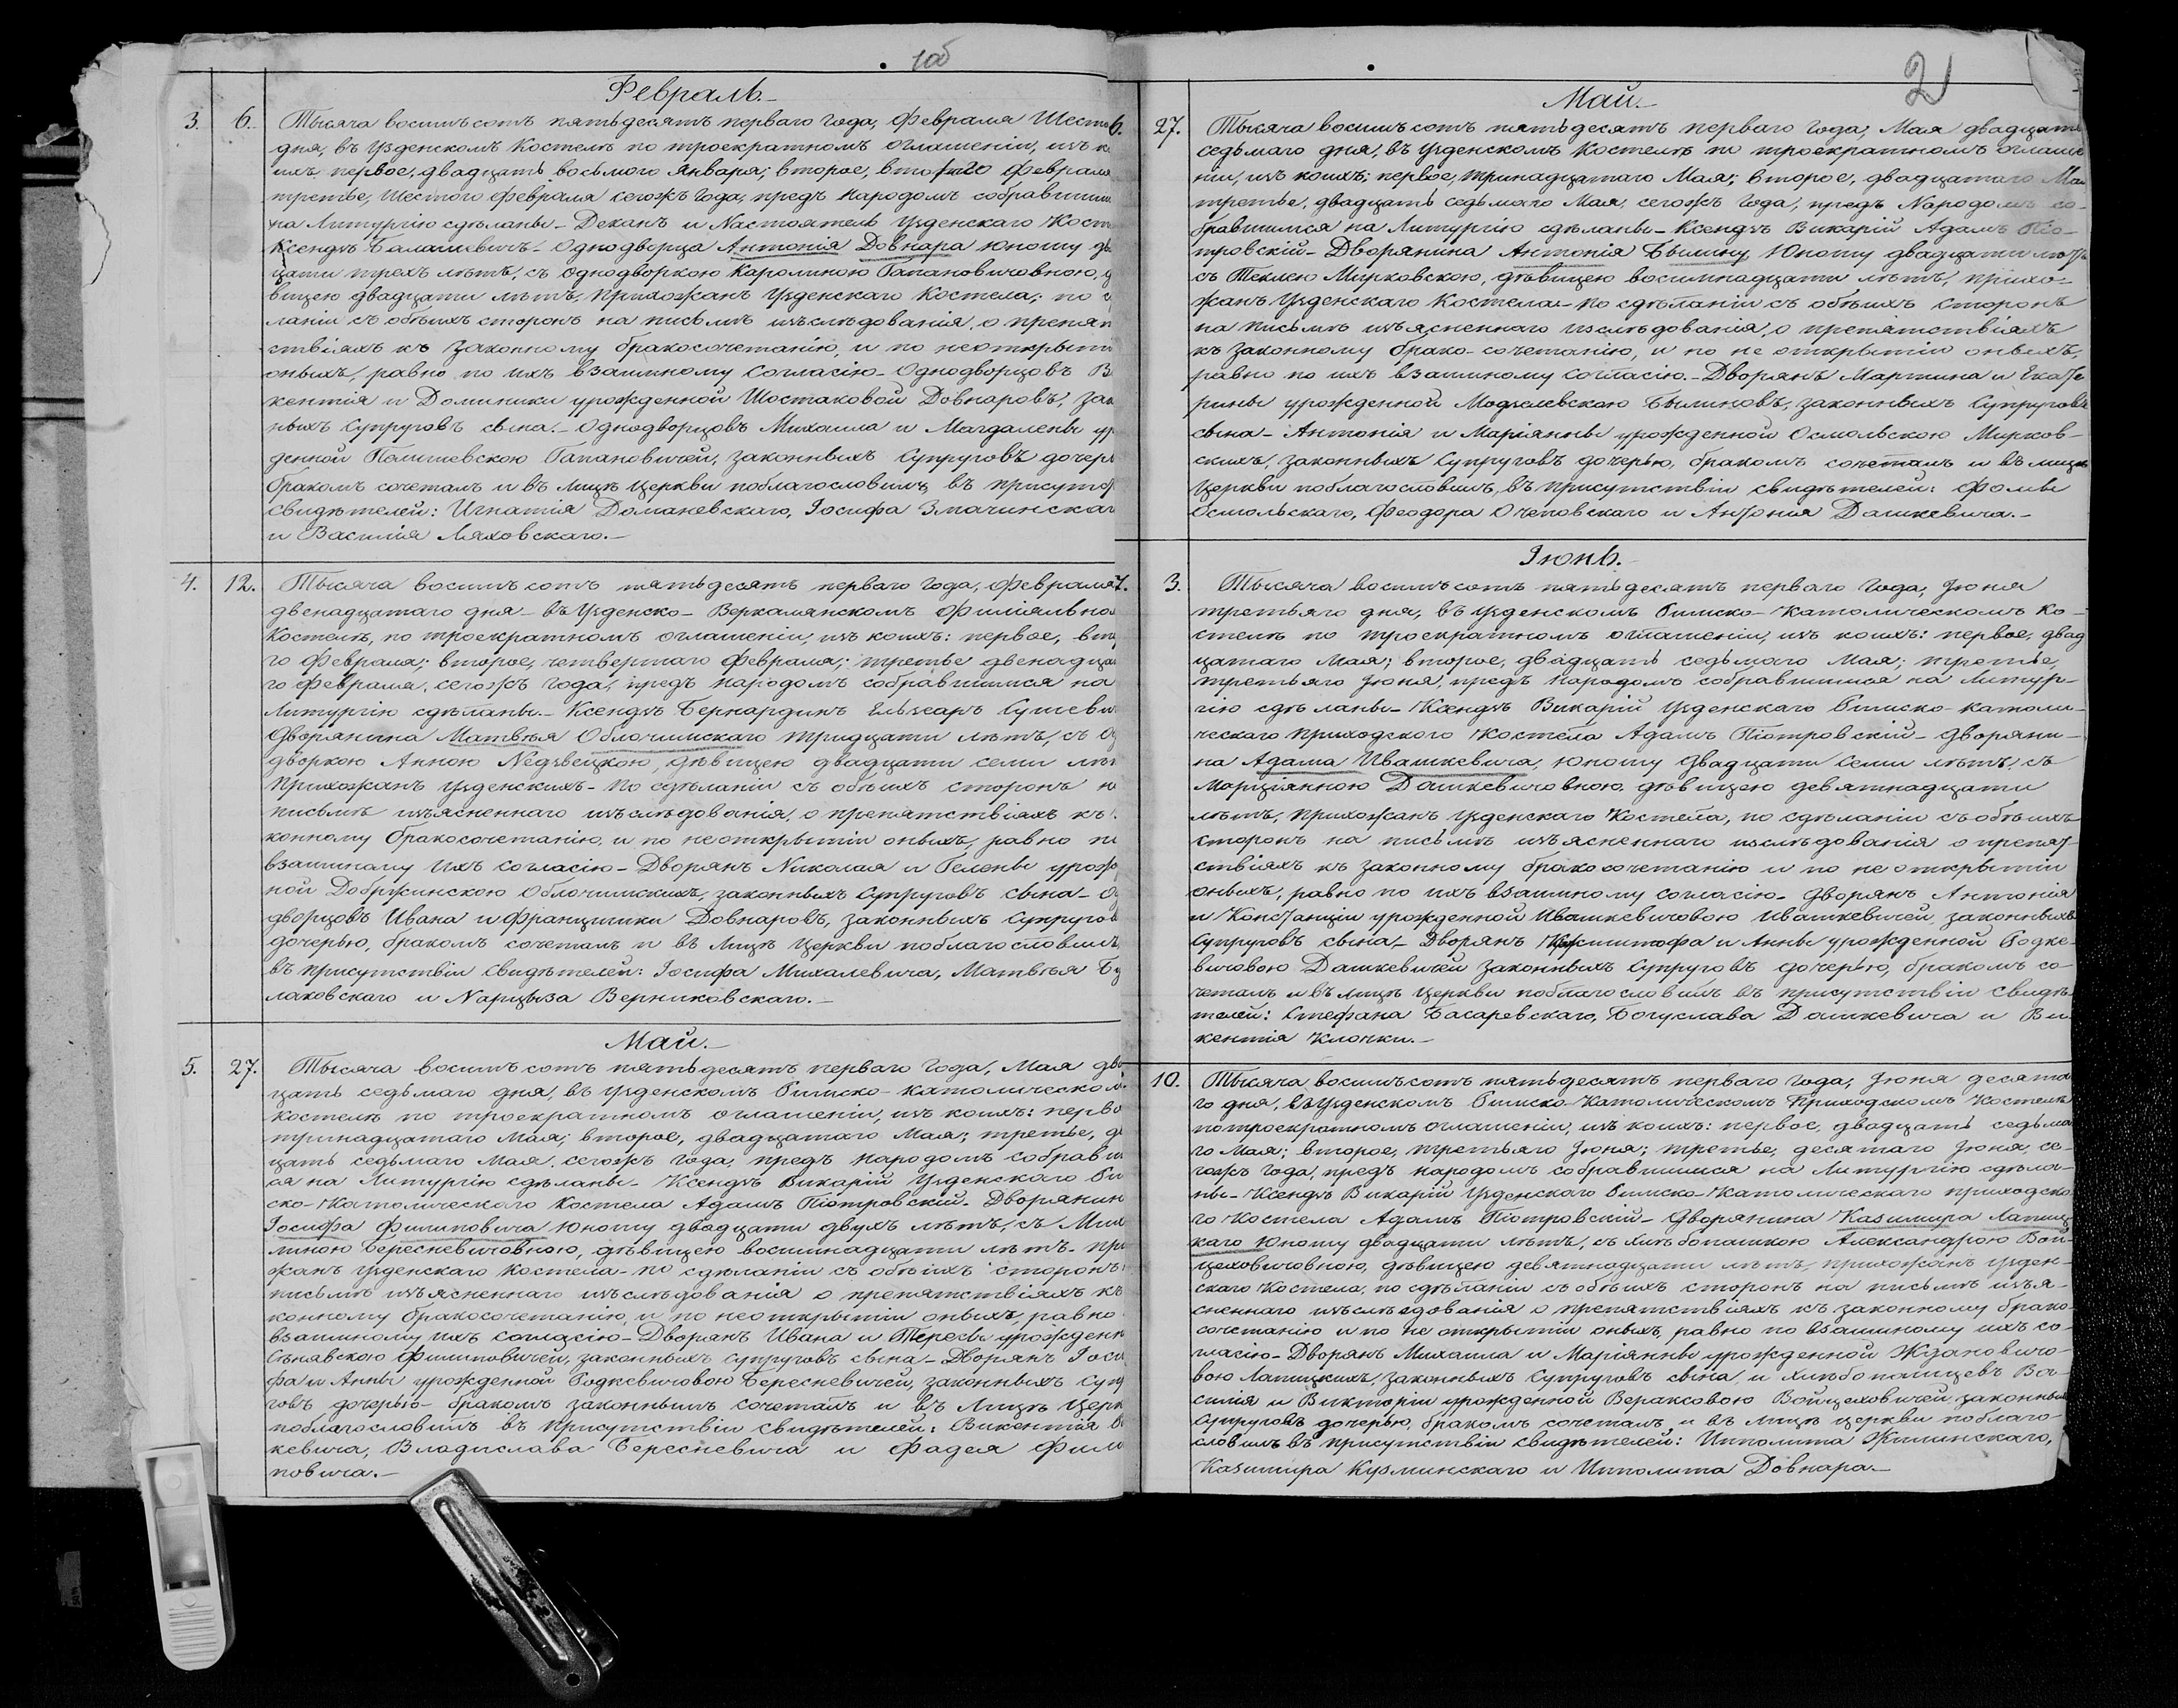 1об
Февраль.-
3. 6. Тысяча восимъсотъ пятьдесятъ перваго года, Февраля Шест
дня, въ Узденскомъ Костелѣ по троекратномъ оглашеніи, изъ к
ихъ первое, двадцать восьмого Января; второе, втораго Февраля
третье, Шестого Февраля сегожъ года, предъ Народомъ собравшим
на Литургію сдѣланы - Деканъ и Настоятель Узденскаго Кост
Ксендзъ Балашевичъ - Однодворца Антонія Довнара юношу дв
цати трехъ лѣтъ, съ Однодворкою Каролиною Гапановичовною, д
вицею двадцати лѣтъ, Прихожанъ Узденскаго Костела; по с
ланіи съ обѣихъ сторонъ на письмѣ изъслѣдованія, о препят
ствіяхъ къ законному бракосочетанію, и по неоткрыти
оныхъ, равно по ихъ взаимному согласію - Однодворцовъ В
кентія и Доминики урожденной Шостаковой Довнаровъ, зак
ныхъ Супруговъ сына. - Однодворцовъ Михаила и Магдалены ур
денной Гапановичей, законныхъ Супруговъ дочерь
бракомъ сочеталъ и въ лицѣ Церкви поблагословилъ въ присут
свидѣтелей: Игнатія Доманевскаго, Іосифа Змачинскаг
и Василія Ляховскаго.-
4. 12. Тысяча восимъсотъ пятьдесятъ перваго года, Февраля
двенадцатаго дня - въ Узденско- Веркалянскомъ Филіяльно
Костелѣ, по троекратномъ оглашеніи, изъ коихъ: первое, вто
го Февраля; второе, четвертаго Февраля; третье двенадца
го Февраля, сегожъ года, предъ народомъ собравшимся на
Литургію сдѣланы. - Ксендзъ Бернардинъ Ельзеаръ Сушеви
Дворянина Матвѣя Облочимскаго тридцати лѣтъ, съ О
дворкою Анною Недзвецкою, дѣвицею двадцати семи лѣт
Прихожанъ Узденскихъ - По сдѣланіи съ обѣихъ сторонъ н
письмѣ изъясненнаго изъслѣдованія, о препятствіяхъ къ
конному бракосочетанію, и по неоткрытіи оныхъ, равно по
взаимному ихъ согласію - Дворянъ Николая и Гелены урож
ной Добржинскою Облочимскихъ, законныхъ Супруговъ сына - О
дворцовъ Ивана и Францишки Довнаровъ, законныхъ Супругов
дочерью, бракомъ сочеталъ и въ лицѣ Церкви поблагословилъ,
въ присутствіи свидѣтелей: Іосифа Михалевича, Матвѣя Бу
лаковскаго и Нарцыза Верниковскаго.-
Май.-
5. 27. Тысяча восимъсотъ пятьдесятъ перваго года, Мая два
цать седьмаго дня, въ Узденскомъ Римско- Католическомъ
Костелѣ по троекратномъ оглашеніи, изъ коихъ: перво
тринадцатаго Мая; второе, двадцатаго Мая; третье, д
цать седьмаго Мая, сегожъ года, предъ народомъ собравш
ся на Литургію сдѣланы - Ксендзъ Викарій Узденскаго Ри
ско- Католическаго Костела Адамъ Піотровскій - Дворянин
Іосифа Филиповича Юношу двадцати двухъ лѣтъ, съ Мих
линою Бересневичовною, дѣвицею восимнадцати лѣтъ - При
жанъ Узденскаго Костела - по сдѣланіи съ обѣихъ сторонъ
письмѣ изъясненнаго изъслѣдованія о препятствіяхъ къ
конному бракосочетанію, и по неоткрытіи оныхъ, равно
взаимному ихъ согласію - Дворянъ Ивана и Тересы урожден
Сѣнявскою Филиповичей, законныхъ супруговъ сына - Дворянъ Іоси
фа и Анны урожденной Родкевичовою Бересневичей, законныхъ Суп
говъ дочерью - бракомъ законнымъ сочеталъ и въ Лицѣ Церк
поблагословилъ въ присутствіи свидѣтелей: Викентія
кевича, Владислава Бересневича и Фадея Фили
повича.-
2
Май.-
6. 27. Тысяча восимъсотъ пятьдесятъ перваго года, Мая двадцать
седьмаго дня, въ Узденскомъ Костелѣ по троекратномъ оглаше
ніи, изъ коихъ; первое, тринадцатаго Мая; второе, двадцатаго Мая
третье, двадцать седьмаго Мая, сегожъ года, предъ Народомъ со-
бравшимся на Литургію сдѣланы - Ксендзъ Викарій Адамъ Піо-
тровскій - Дворянина Антонія Былину Юношу двадцати лѣтъ
съ Теклею Мирковскою, дѣвицею восимнадцати лѣтъ, прихо-
жанъ Узденскаго Костела - По сдѣланіи съ обѣихъ сторонъ
на письмѣ изъясненнаго изслѣдованія, о препятствіяхъ
къ законному брако-сочетанію, и по не открытіи оныхъ,
равно по ихъ взаимному согласію. - Дворянъ Мартина и Екате
рины урожденной Модзелевскою Былиновъ, законныхъ Супруговъ
сына - Антонія и Маріянны урожденной Осмольскою Мирков-
скихъ, законныхъ Супруговъ дочерью, бракомъ сочеталъ и въ лицѣ
Церкви поблагословилъ, въ присутствіи свидѣтелей: Фомы
Осмольскаго, Феодора Очеповскаго и Антонія Дашкевича.-
Іюнь.
7. 3. Тысяча восимъсотъ пятьдесятъ перваго года, Іюня
третьяго дня, въ Узденскомъ Римско- Католическомъ Ко-
стелѣ по троекратномъ оглашеніи, изъ коихъ: первое, двад
цатаго Мая; второе, двадцать седьмаго Мая; третье,
третьяго Іюня, предъ Народомъ собравшимся на Литур-
гію сдѣланы - Ксендзъ Викарій Узденскаго Римско- католи-
ческаго Приходскаго Костела Адамъ Піотровскій - Дворяни-
на Адама Ивашкевича, Юношу двадцати семи лѣтъ, съ
Марціянною Дашкевичовною, дѣвицею девятнадцати
лѣтъ, Прихожанъ Узденскаго Костела, по сдѣланіи съ обѣихъ
сторонъ на письмѣ изъясненнаго изслѣдованія о препят-
ствіяхъ къ законному бракосочетанію и по не открытіи
оныхъ, равно по ихъ взаимному согласію - Дворянъ Антонія
и Констанціи урожденной Ивашкевичовою Ивашкевичей, законныхъ
Супруговъ сына, - Дворянъ Кржиштофа и Анны урожденной Родке-
вичовою Дашкевичей законныхъ Супруговъ дочерью, бракомъ со-
четалъ и въ лицѣ Церкви поблагословилъ въ присутствіи свидѣ-
телей: Стефана Басаревскаго, Богуслава Дашкевича и Ви
кентія Клочки.-
10. Тысяча восимъсотъ пятьдесятъ перваго года, Іюня десята
го дня, въ Узденскомъ Римско-Католическомъ Приходскомъ Костелѣ
по троекратномъ оглашеніи, изъ коихъ: первое, двадцать седьма
го Мая; второе, третьяго Іюня; третье, десятаго Іюня, се-
гожъ года, предъ народомъ собравшимся на Литургію сдѣла-
ны - Ксендзъ Викарій Узденскаго Римско-Католическаго приходска
го Костела Адамъ Піотровскій - Дворянина Казимира Лапиц
каго Юношу двадцати лѣтъ, съ хлѣбопашкою Александрою Вой-
цеховичовною, дѣвицею девятнадцати лѣтъ, прихожанъ Узден-
скаго Костела, по сдѣланіи съ обѣихъ сторонъ на письмѣ изъя-
сненнаго изъслѣдованія о препятствіяхъ къ законному брако-
сочетанію и по не открытіи оныхъ, равно по взаимному ихъ со-
гласію - Дворянъ Михаила и Маріянны урожденной Ждановичо-
вою Лапицкихъ, законныхъ Супруговъ сына, и хлѣбопашцевъ Ва-
силія и Викторіи урожденной Вераксовою Войцеховичей, законных
Супруговъ дочерью, бракомъ сочеталъ, и въ лицѣ церкви поблаго-
словилъ въ присутствіи свидѣтелей: Ипполита Жилинскаго,
Казимира Кузминскаго и Ипполита Довнара.-